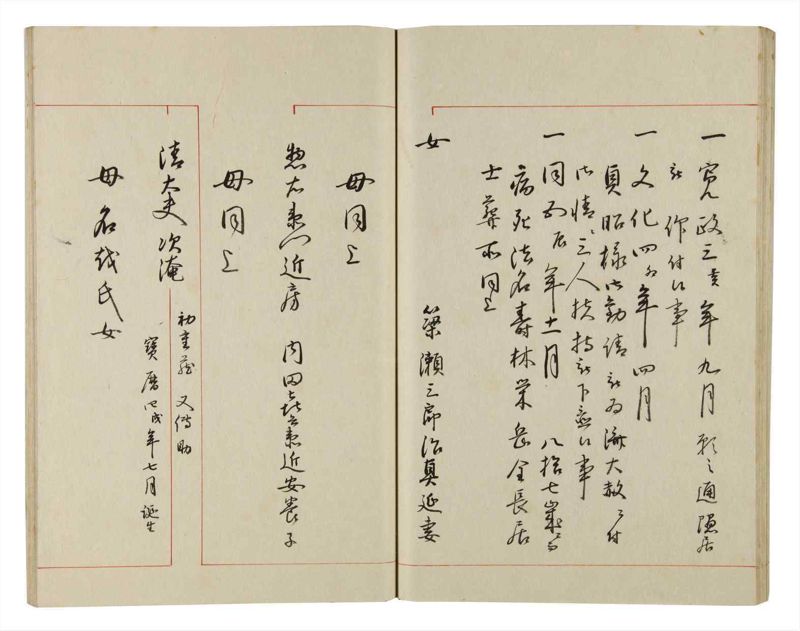 一 寛政三亥年九月願之通隠居
被 仰付候事
一 文化四卯年四月
貞昭様御勤請被為済大赦ニ付
御情ニ三人扶持被下置候事
一 同五辰年十一月 八拾七歳ニ而
病死法名壽林栄岳全長居
士葬所同上
女 簗瀬三郎治真延妻
母同上
惣右衛門近房 内田喜兵衛近安養子
母同上
清大夫次淹
初圭蔵 又傳助
寶暦四戌年七月誕生
母名越氏女